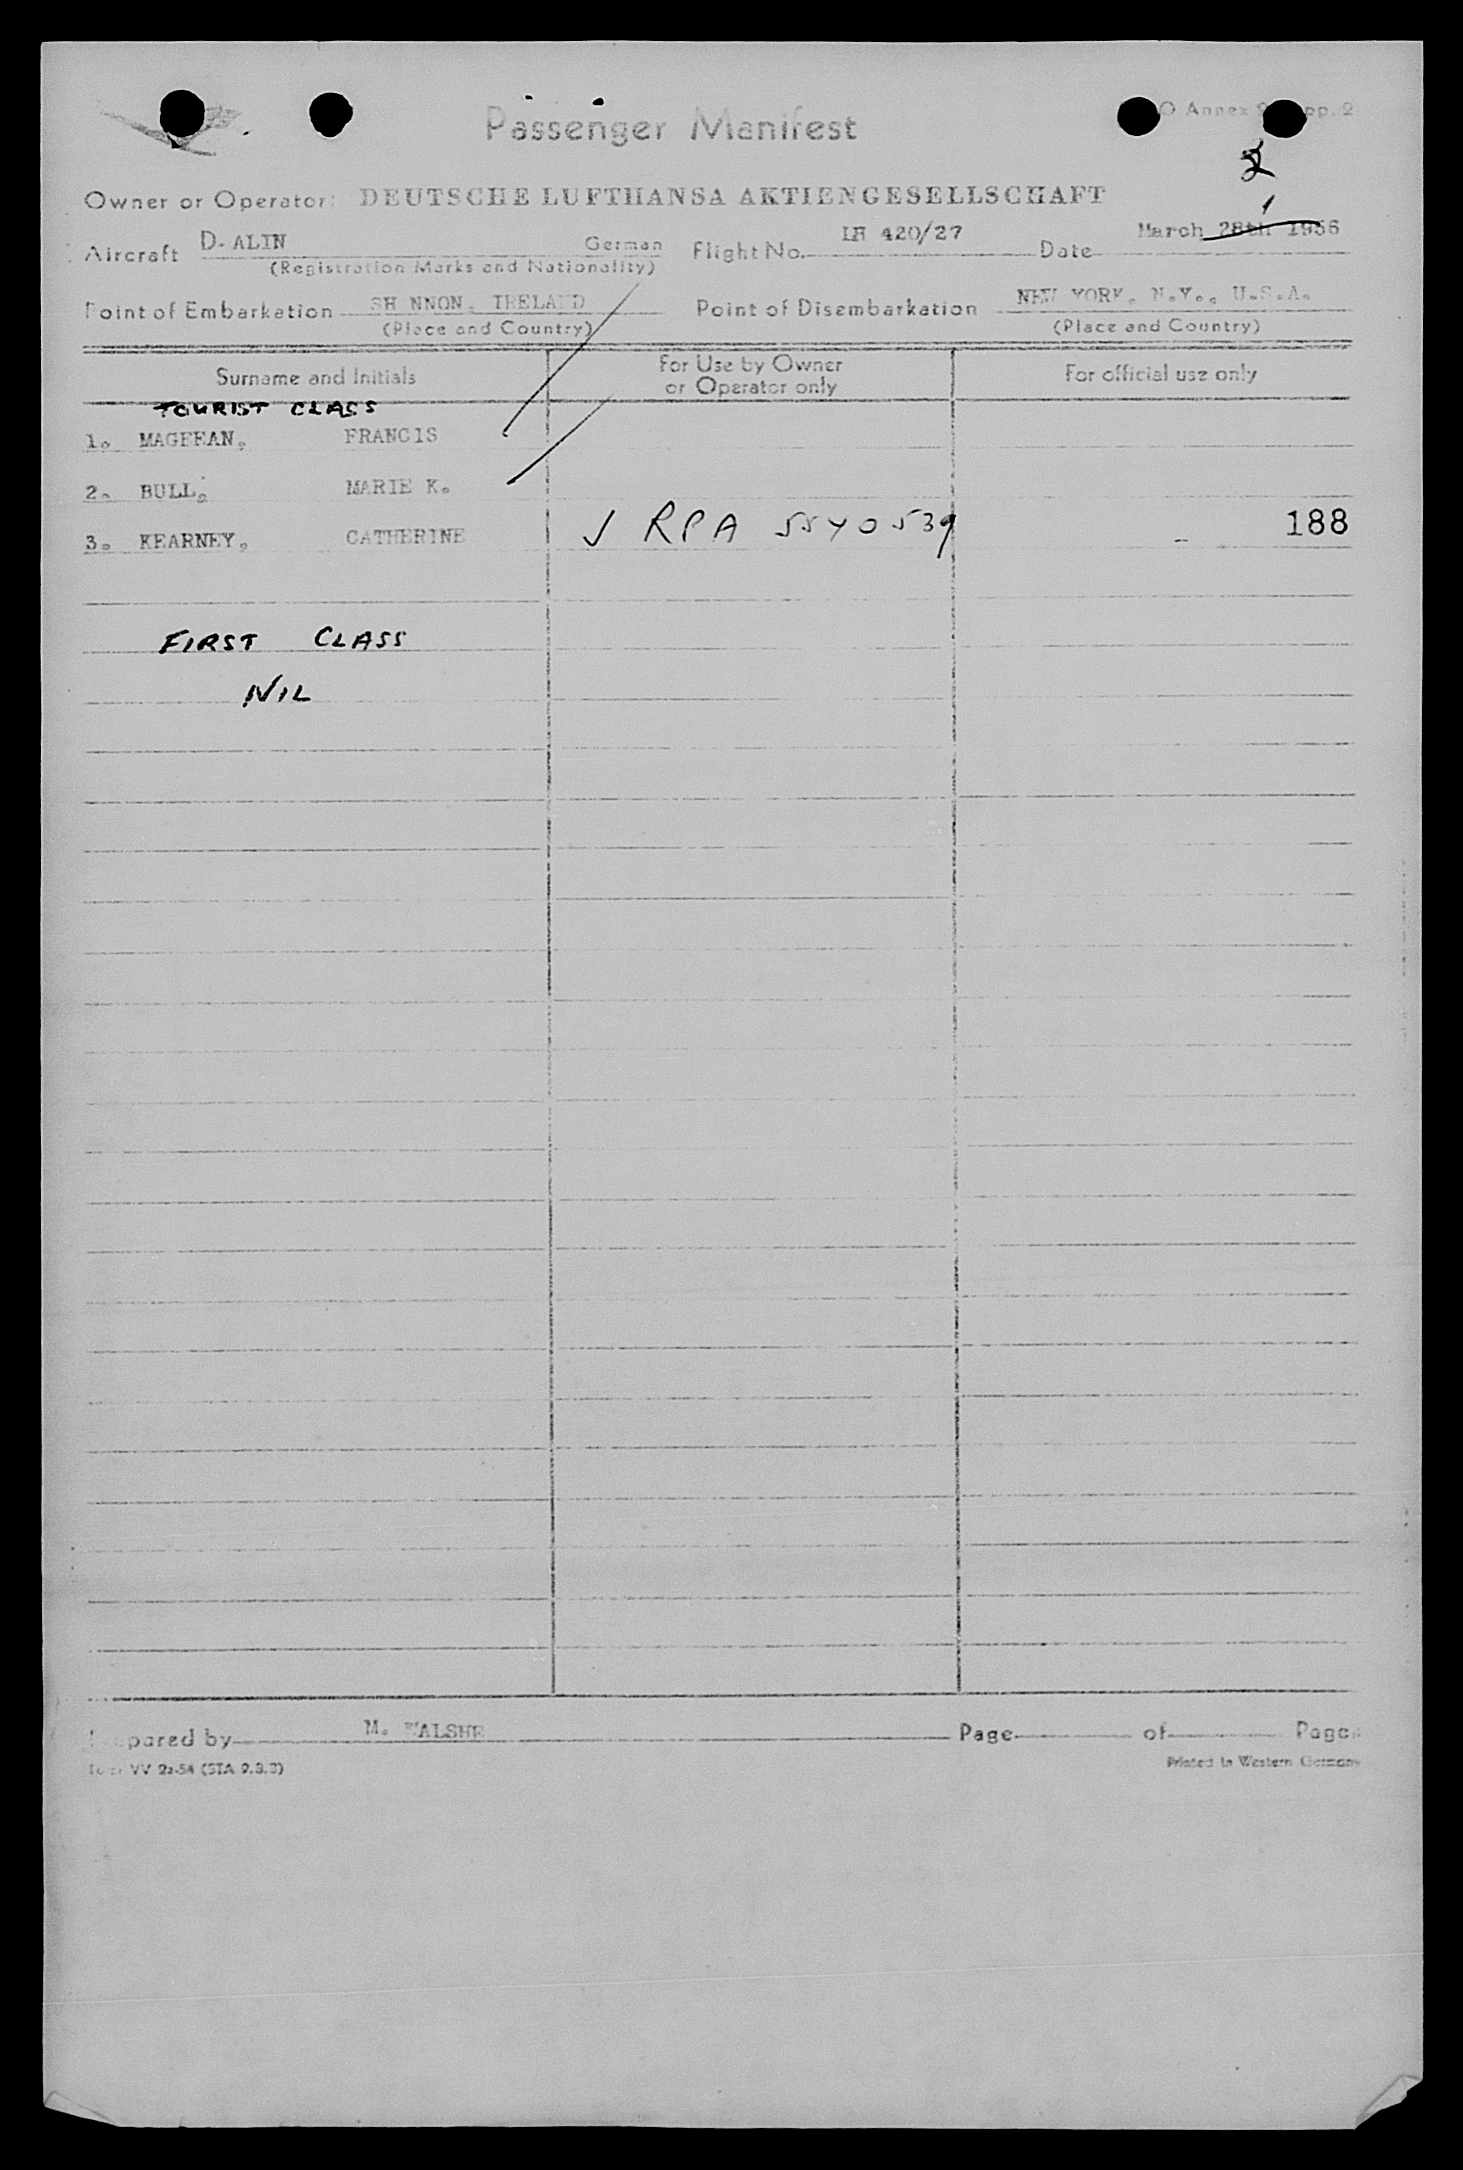 Passenger Manifest
O Annex 9 App. 2
2
Owner or Operator: DEUTSCHE LUFTHANSA AKTIENGESELLSCHAFT
1
Aircraft D-ALIN German Flight No. LH 420/27 Date March 28th 1956
(Registration Marks and Nationality)
Point of Embarkation SH NNON, IRELAND Point of Disembarkation NEW YORK, N.Y., U.S.A.
(Place and Country) (Place and Country)
Surname and Initials For Use by Owner or Operator only For official use only
TOURIST CLASS
1. MAGEEAN, FRANCIS
2. BULL, MARIE K.
3. KEARNEY, CATHERINE √ RPA 55Y0539 188
FIRST CLASS
NIL
Prepared by M. WALSHE Page of Pages
Form VV 22-54 (STA 9.3.3) Printed in Western Germany